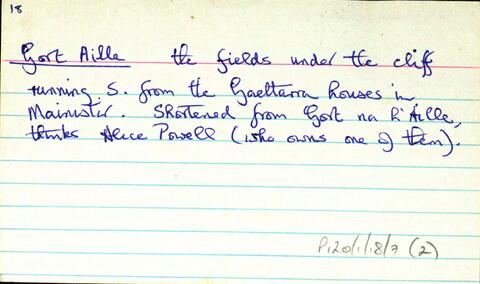 18
Gort Aille the fields under the cliff
running S. from the Gaeltarra houses in
Mainistir. Shortened from Gort na hAille,
thinks Alice Powell (who owns one of them).
P120/1/18/7 (2)